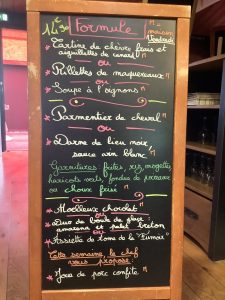 14€50 Formule
Tartine de chèvre frais et
aiguillettes de canard
ou
Rillettes de maquereaux
ou
Soupe à l'oignons
Parmentier de cheval
ou
Darne de lieu noir
sauce vin blanc
Garnitures frites, riz,
haricots verts, fondue de poireaux
ou choux frisé
Moelleux chocolat
ou
Duo de boule de glace :
amarena et palet breton
ou
Assiette de tome de la "Fumoir"
Cette semaine le chef
vous propose
Joue de porc confite